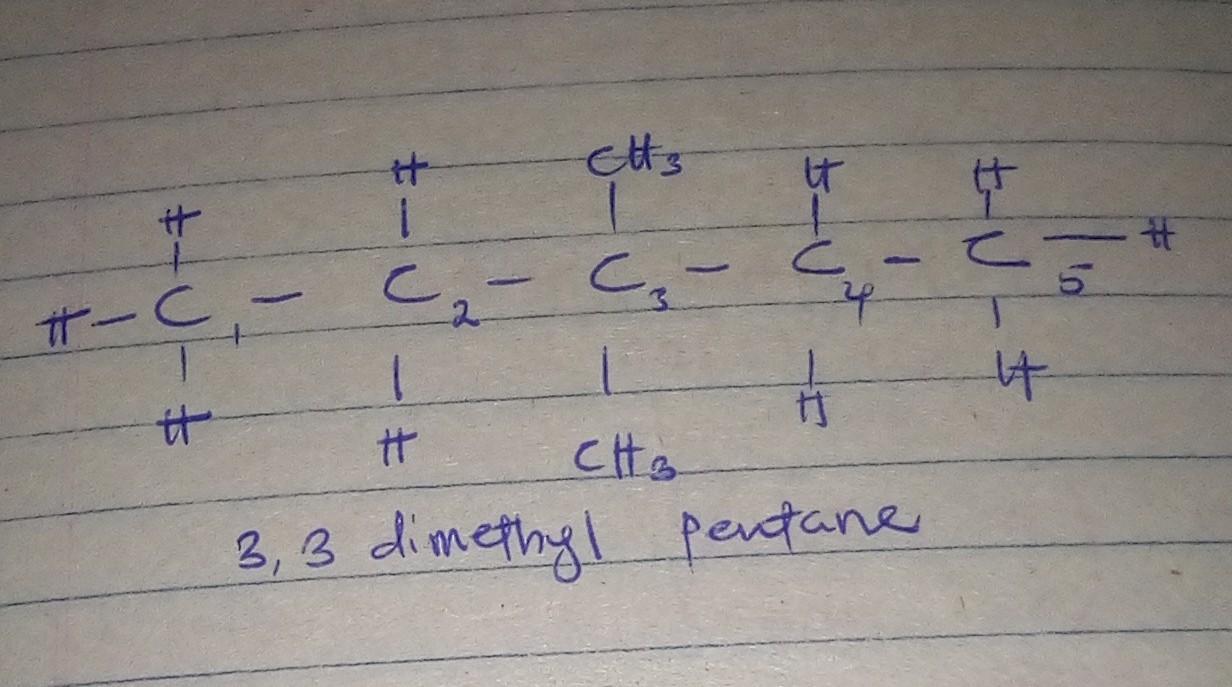 H H CH3 H H
H-C1 - C2 - C3 - C4 - C5 - H
H H CH3 H H
3, 3 dimethyl pentane